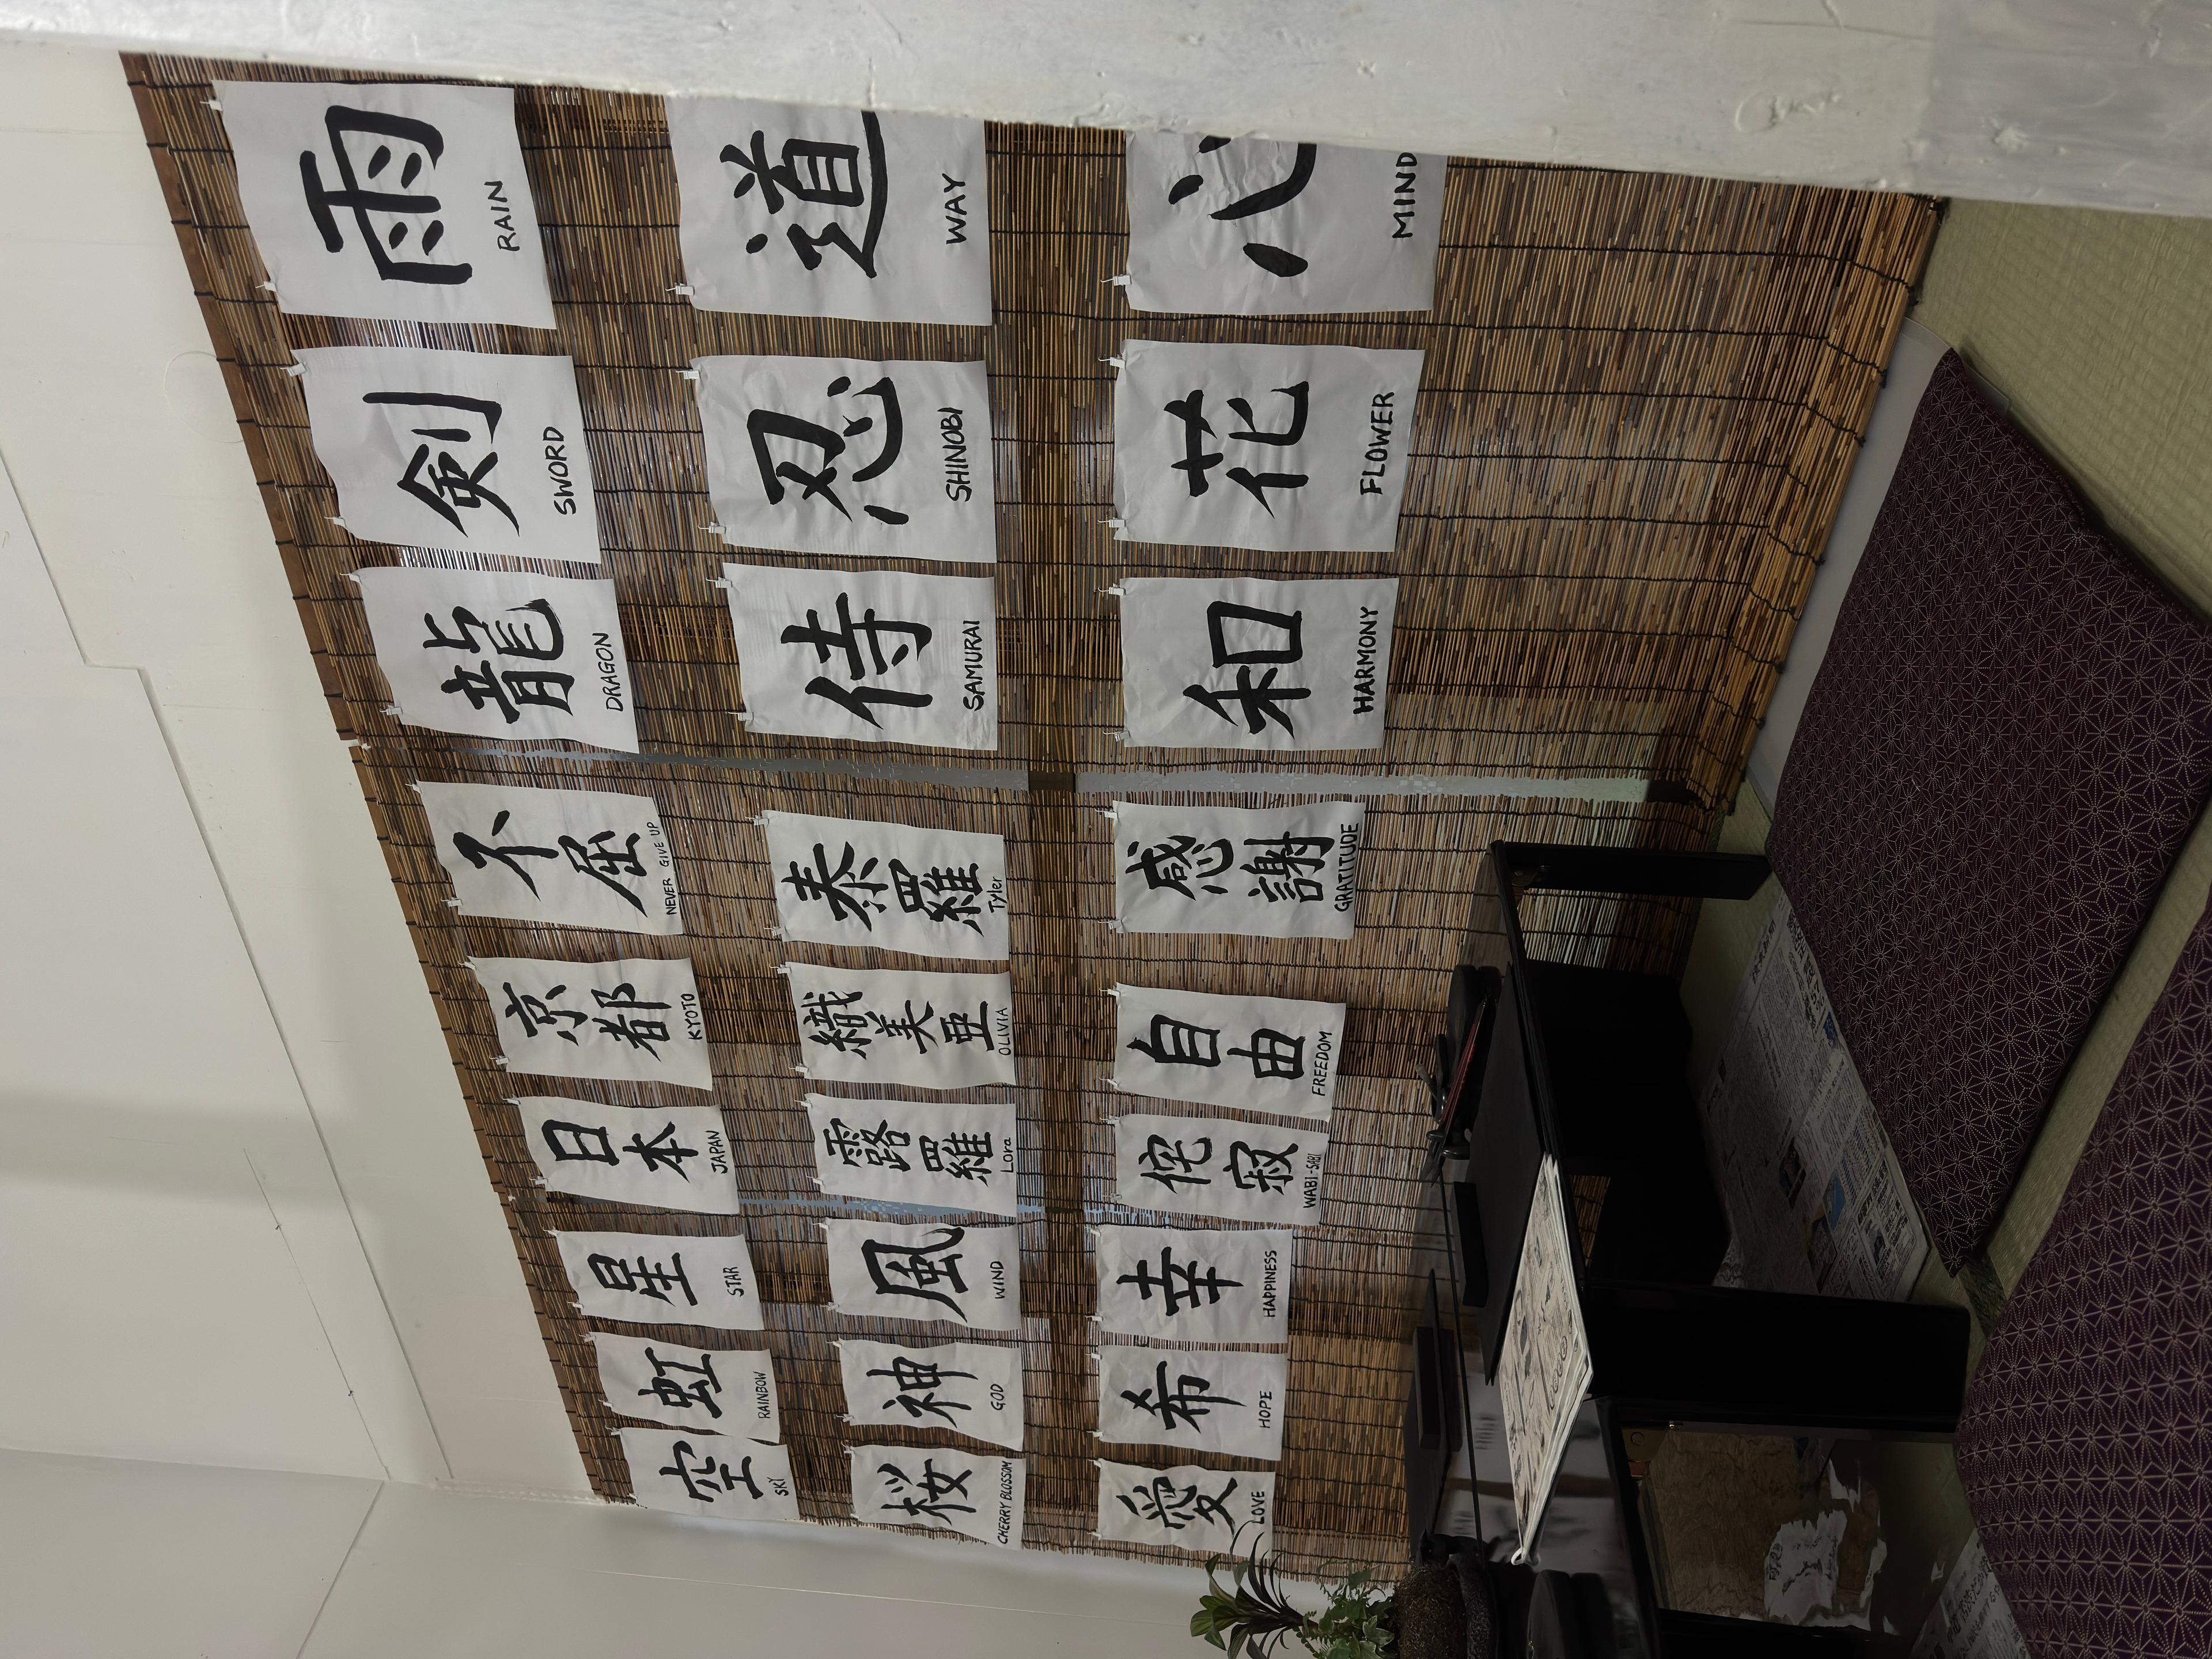 空
SKY
虹
RAINBOW
星
STAR
日本
JAPAN
京都
KYOTO
不屈
NEVER GIVE UP
龍
DRAGON
剣
SWORD
雨
RAIN
桜
CHERRY BLOSSOM
神
GOD
風
WIND
露羅
Lora
織美亜
OLIVIA
泰羅
Tyler
侍
SAMURAI
忍
SHINOBI
道
WAY
愛
LOVE
希
HOPE
幸
HAPPINESS
侘寂
WABI-SABI
自由
FREEDOM
感謝
GRATITUDE
和
HARMONY
花
FLOWER
心
MIND